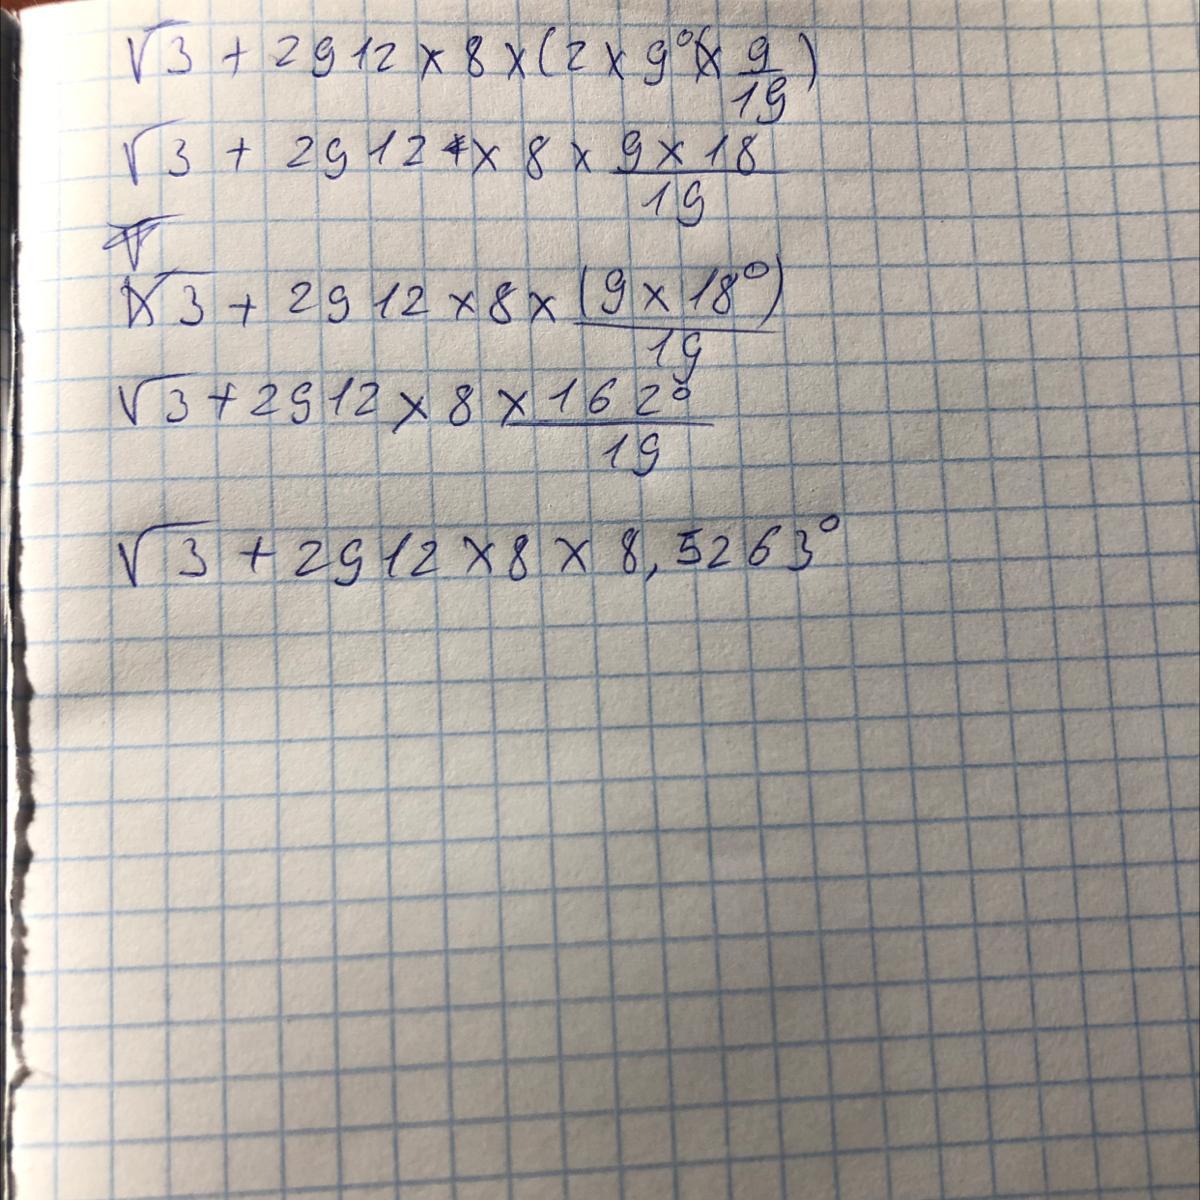 √3 + 2912 × 8 × (2 × 9° × 9/19)
√3 + 2912 × 8 × 9 × 18/19
√3 + 2912 × 8 × (9 × 18°)/19
√3 + 2912 × 8 × 162°/19
√3 + 2912 × 8 × 8,5263°